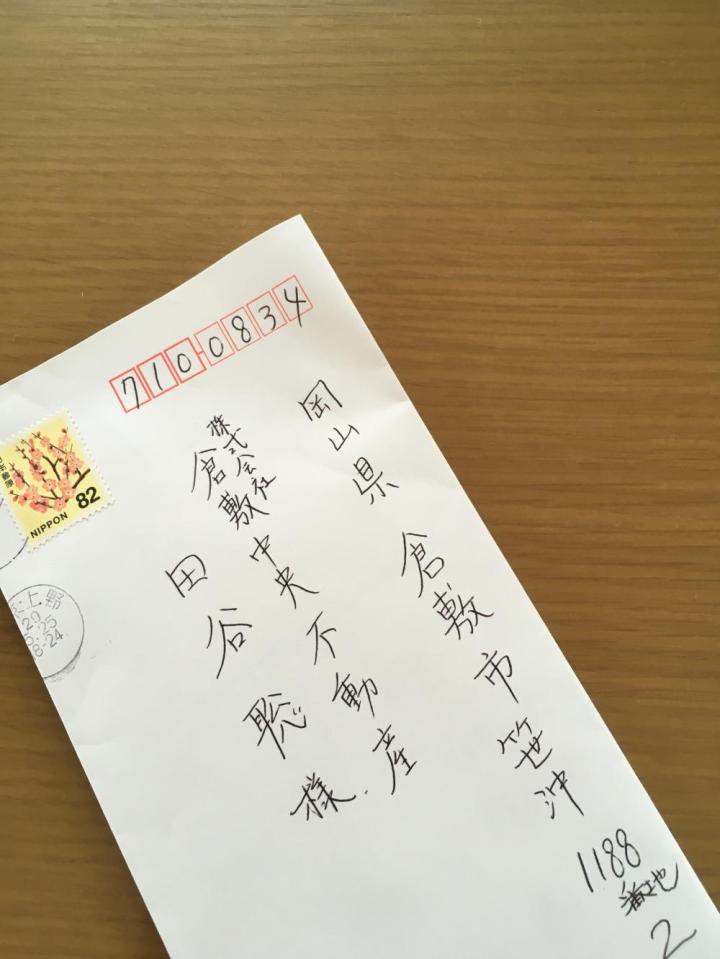 7100834
岡山県倉敷市笹沖1188番地2
株式会社倉敷中央不動産
田谷聡様
NIPPON 82
上野
20
5.25
8-24